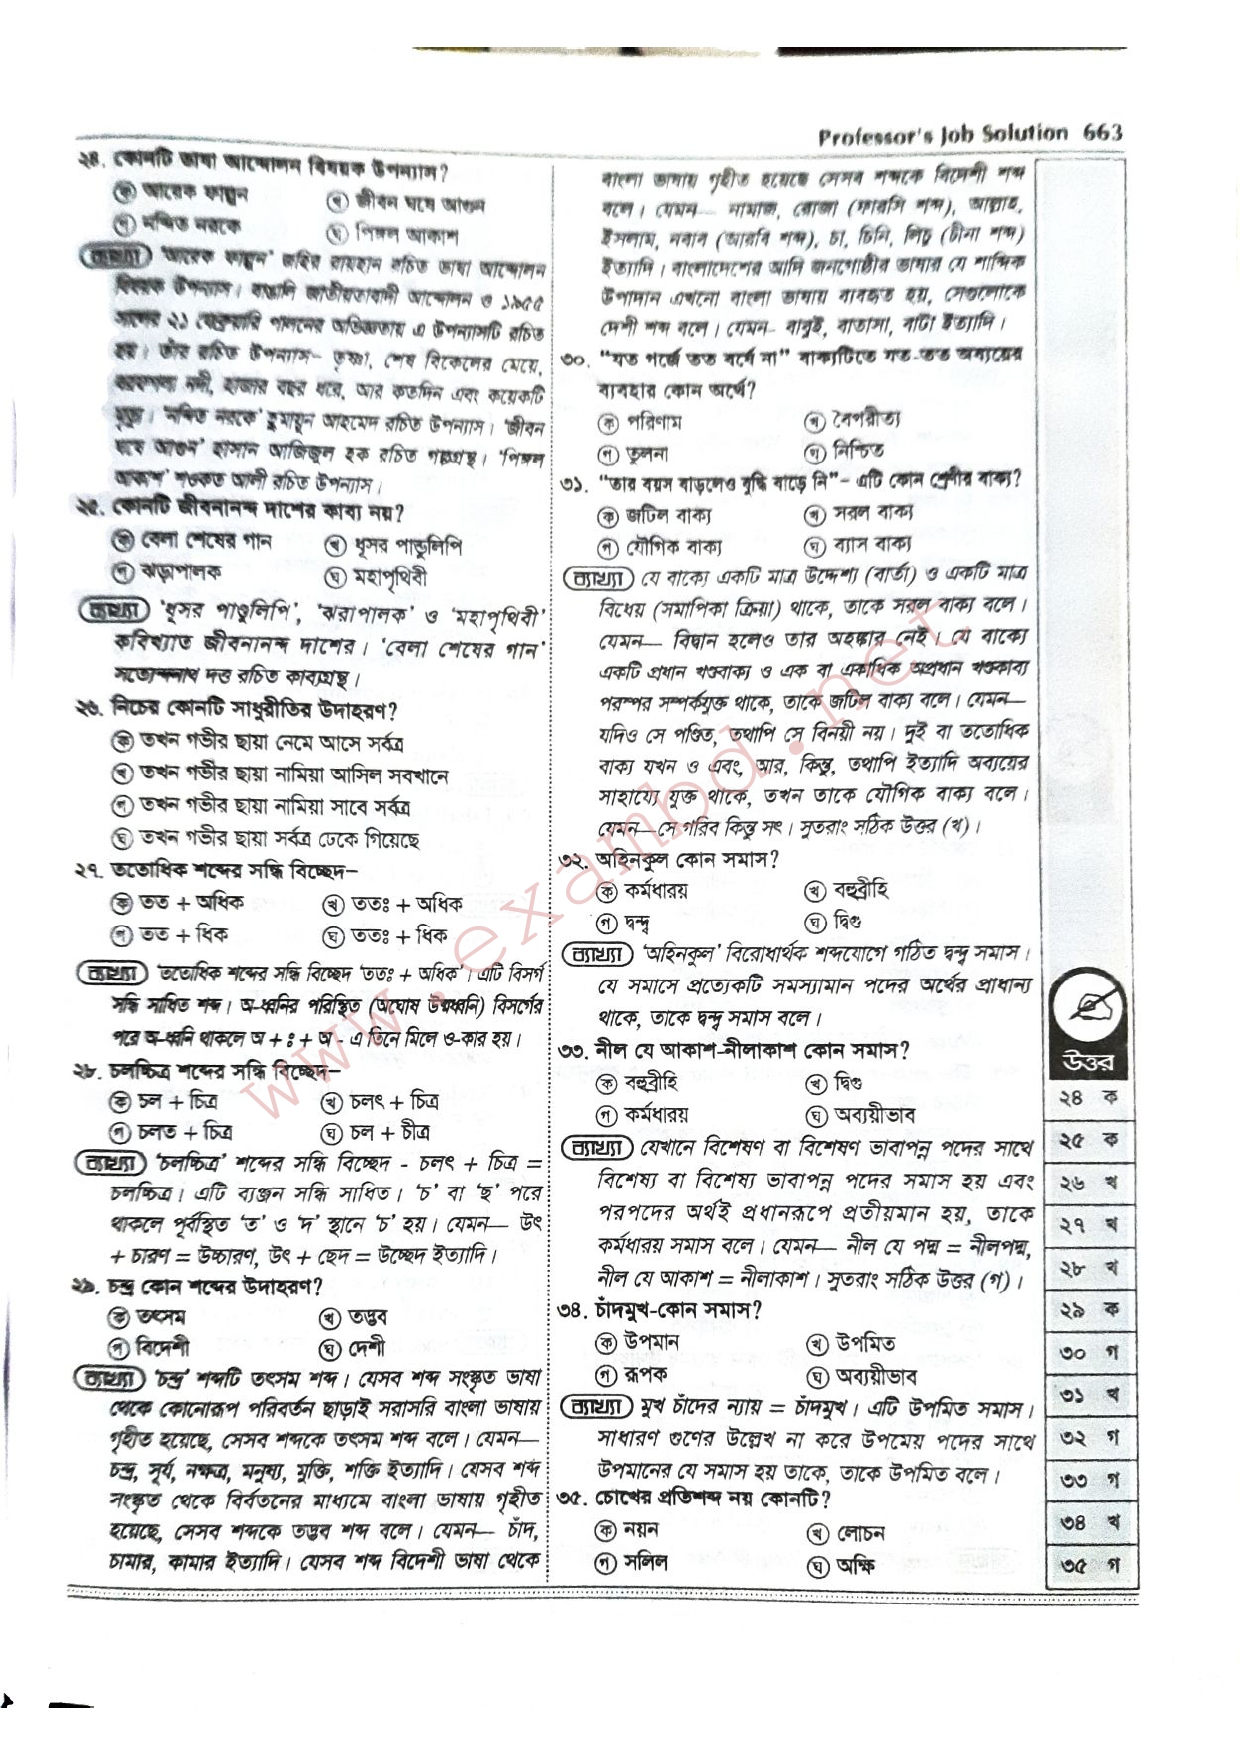 Professor's Job Solution 663
২৪. কোনটি ভাষা আন্দোলন বিষয়ক উপন্যাস?
ক আরেক ফাল্গুন
খ জীবন ঘষে আগুন
গ নন্দিত নরকে
ঘ পিঙ্গল আকাশ
ব্যাখ্যা 'আরেক ফাল্গুন' জহির রায়হান রচিত ভাষা আন্দোলন
বিষয়ক উপন্যাস। বাঙালি জাতীয়তাবাদী আন্দোলন ও ১৯৫৫
সালের ২১ ফেব্রুয়ারি পালনের অভিজ্ঞতায় এ উপন্যাসটি রচিত
হয়। তাঁর রচিত উপন্যাস– তৃষ্ণা, শেষ বিকেলের মেয়ে,
বরফগলা নদী, হাজার বছর ধরে, আর কতদিন এবং কয়েকটি
মৃত্যু। 'নন্দিত নরকে' হুমায়ূন আহমেদ রচিত উপন্যাস। 'জীবন
ঘষে আগুন' হাসান আজিজুল হক রচিত গল্পগ্রন্থ। 'পিঙ্গল
আকাশ' শওকত আলী রচিত উপন্যাস।
২৫. কোনটি জীবনানন্দ দাশের কাব্য নয়?
ক বেলা শেষের গান
খ ধূসর পান্ডুলিপি
গ ঝড়াপালক
ঘ মহাপৃথিবী
ব্যাখ্যা 'ধূসর পাণ্ডুলিপি', 'ঝরাপালক' ও 'মহাপৃথিবী'
কবিখ্যাত জীবনানন্দ দাশের। 'বেলা শেষের গান'
সত্যেন্দ্রনাথ দত্ত রচিত কাব্যগ্রন্থ।
২৬. নিচের কোনটি সাধুরীতির উদাহরণ?
ক তখন গভীর ছায়া নেমে আসে সর্বত্র
খ তখন গভীর ছায়া নামিয়া আসিল সবখানে
গ তখন গভীর ছায়া নামিয়া সাবে সর্বত্র
ঘ তখন গভীর ছায়া সর্বত্র ঢেকে গিয়েছে
২৭. ততোধিক শব্দের সন্ধি বিচ্ছেদ–
ক তত + অধিক
খ ততঃ + অধিক
গ তত + ধিক
ঘ ততঃ + ধিক
ব্যাখ্যা 'ততোধিক শব্দের সন্ধি বিচ্ছেদ 'ততঃ + অধিক'। এটি বিসর্গ
সন্ধি সাধিত শব্দ। অ-ধ্বনির পরিস্থিত (অঘোষ উষ্মধ্বনি) বিসর্গের
পরে অ-ধ্বনি থাকলে অ + ঃ + অ - এ তিনে মিলে ও-কার হয়।
২৮. চলচ্চিত্র শব্দের সন্ধি বিচ্ছেদ–
ক চল + চিত্র
খ চলৎ + চিত্র
গ চলত + চিত্র
ঘ চল + চীত্র
ব্যাখ্যা 'চলচ্চিত্র' শব্দের সন্ধি বিচ্ছেদ - চলৎ + চিত্র =
চলচ্চিত্র। এটি ব্যঞ্জন সন্ধি সাধিত। 'চ' বা 'ছ' পরে
থাকলে পূর্বস্থিত 'ত' ও 'দ' স্থানে 'চ' হয়। যেমন— উৎ
+ চারণ = উচ্চারণ, উৎ + ছেদ = উচ্ছেদ ইত্যাদি।
২৯. চন্দ্র কোন শব্দের উদাহরণ?
ক তৎসম
খ তদ্ভব
গ বিদেশী
ঘ দেশী
ব্যাখ্যা 'চন্দ্র' শব্দটি তৎসম শব্দ। যেসব শব্দ সংস্কৃত ভাষা
থেকে কোনোরূপ পরিবর্তন ছাড়াই সরাসরি বাংলা ভাষায়
গৃহীত হয়েছে, সেসব শব্দকে তৎসম শব্দ বলে। যেমন—
চন্দ্র, সূর্য, নক্ষত্র, মনুষ্য, মুক্তি, শক্তি ইত্যাদি। যেসব শব্দ
সংস্কৃত থেকে বিবর্তনের মাধ্যমে বাংলা ভাষায় গৃহীত
হয়েছে, সেসব শব্দকে তদ্ভব শব্দ বলে। যেমন— চাঁদ,
চামার, কামার ইত্যাদি। যেসব শব্দ বিদেশী ভাষা থেকে
বাংলা ভাষায় গৃহীত হয়েছে সেসব শব্দকে বিদেশী শব্দ
বলে। যেমন— নামাজ, রোজা (ফারসি শব্দ), আল্লাহ,
ইসলাম, নবাব (আরবি শব্দ), চা, চিনি, লিচু (চীনা শব্দ)
ইত্যাদি। বাংলাদেশের আদি জনগোষ্ঠীর ভাষার যে শাব্দিক
উপাদান এখনো বাংলা ভাষায় ব্যবহৃত হয়, সেগুলোকে
দেশী শব্দ বলে। যেমন- বাবুই, বাতাসা, বাটা ইত্যাদি।
৩০. "যত গর্জে তত বর্ষে না" বাক্যটিতে যত-তত অব্যয়ের
ব্যবহার কোন অর্থে?
ক পরিণাম
খ বৈপরীত্য
গ তুলনা
ঘ নিশ্চিত
৩১. "তার বয়স বাড়লেও বুদ্ধি বাড়ে নি"– এটি কোন শ্রেণীর বাক্য?
ক জটিল বাক্য
খ সরল বাক্য
গ যৌগিক বাক্য
ঘ ব্যাস বাক্য
ব্যাখ্যা যে বাক্যে একটি মাত্র উদ্দেশ্য (বার্তা) ও একটি মাত্র
বিধেয় (সমাপিকা ক্রিয়া) থাকে, তাকে সরল বাক্য বলে।
যেমন— বিদ্বান হলেও তার অহঙ্কার নেই। যে বাক্যে
একটি প্রধান খণ্ডবাক্য ও এক বা একাধিক অপ্রধান খণ্ডকাব্য
পরস্পর সম্পর্কযুক্ত থাকে, তাকে জটিল বাক্য বলে। যেমন—
যদিও সে পণ্ডিত, তথাপি সে বিনয়ী নয়। দুই বা ততোধিক
বাক্য যখন ও এবং, আর, কিন্তু, তথাপি ইত্যাদি অব্যয়ের
সাহায্যে যুক্ত থাকে, তখন তাকে যৌগিক বাক্য বলে।
যেমন—সে গরিব কিন্তু সৎ। সুতরাং সঠিক উত্তর (খ)।
৩২. অহিনকুল কোন সমাস?
ক কর্মধারয়
খ বহুব্রীহি
গ দ্বন্দ্ব
ঘ দ্বিগু
ব্যাখ্যা 'অহিনকুল' বিরোধার্থক শব্দযোগে গঠিত দ্বন্দ্ব সমাস।
যে সমাসে প্রত্যেকটি সমস্যামান পদের অর্থের প্রাধান্য
থাকে, তাকে দ্বন্দ্ব সমাস বলে।
৩৩. নীল যে আকাশ-নীলাকাশ কোন সমাস?
ক বহুব্রীহি
খ দ্বিগু
গ কর্মধারয়
ঘ অব্যয়ীভাব
ব্যাখ্যা যেখানে বিশেষণ বা বিশেষণ ভাবাপন্ন পদের সাথে
বিশেষ্য বা বিশেষ্য ভাবাপন্ন পদের সমাস হয় এবং
পরপদের অর্থই প্রধানরূপে প্রতীয়মান হয়, তাকে
কর্মধারয় সমাস বলে। যেমন— নীল যে পদ্ম = নীলপদ্ম,
নীল যে আকাশ = নীলাকাশ। সুতরাং সঠিক উত্তর (গ)।
৩৪. চাঁদমুখ-কোন সমাস?
ক উপমান
খ উপমিত
গ রূপক
ঘ অব্যয়ীভাব
ব্যাখ্যা মুখ চাঁদের ন্যায় = চাঁদমুখ। এটি উপমিত সমাস।
সাধারণ গুণের উল্লেখ না করে উপমেয় পদের সাথে
উপমানের যে সমাস হয় তাকে, তাকে উপমিত বলে।
৩৫. চোখের প্রতিশব্দ নয় কোনটি?
ক নয়ন
খ লোচন
গ সলিল
ঘ অক্ষি
উত্তর
২৪ ক
২৫ ক
২৬ খ
২৭ খ
২৮ খ
২৯ ক
৩০ গ
৩১ খ
৩২ গ
৩৩ গ
৩৪ খ
৩৫ গ
www.exambd.net